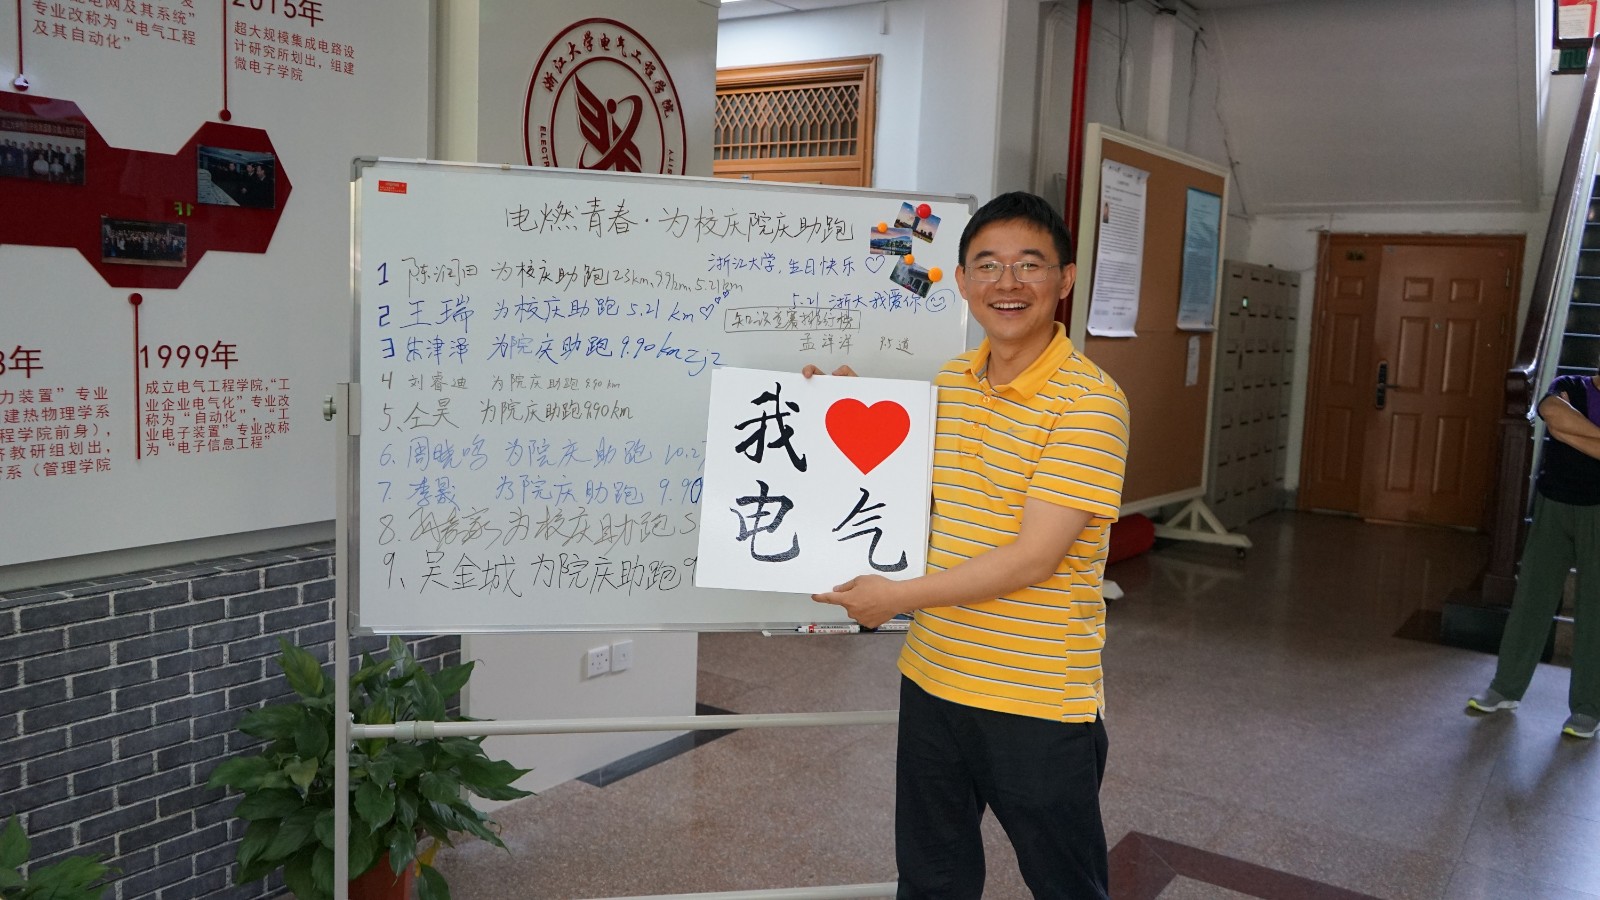 电网及其系统”
专业改称为“电气工程
及其自动化”
2015年
超大规模集成电路设
计研究所划出，组建
微电子学院
1999年
成立电气工程学院，“工
业企业电气化”专业改
称为“自动化”，“工
业电子装置”专业改称
为“电子信息工程”
力装置”专业
建热物理学系
程学院前身），
教研组划出，
系（管理学院
浙江大学电气工程学院
电燃青春·为校庆院庆助跑
浙江大学，生日快乐♡
5.21 浙大我爱你
孟洋洋 95道
1 陈润田 为校庆助跑 123km、99km、5.21km
2 王瑞 为校庆助跑 5.21 km♡
3 朱津泽 为院庆助跑 9.90km zjz
4 刘睿迪 为院庆助跑 9.90 km
5、仝昊 为院庆助跑 9.90 km
6、周晓鸣 为院庆助跑 10.2
7、李晟 为院庆助跑 9.90
8、为校庆助跑 5
9、吴金城 为院庆助跑 9
我❤
电气